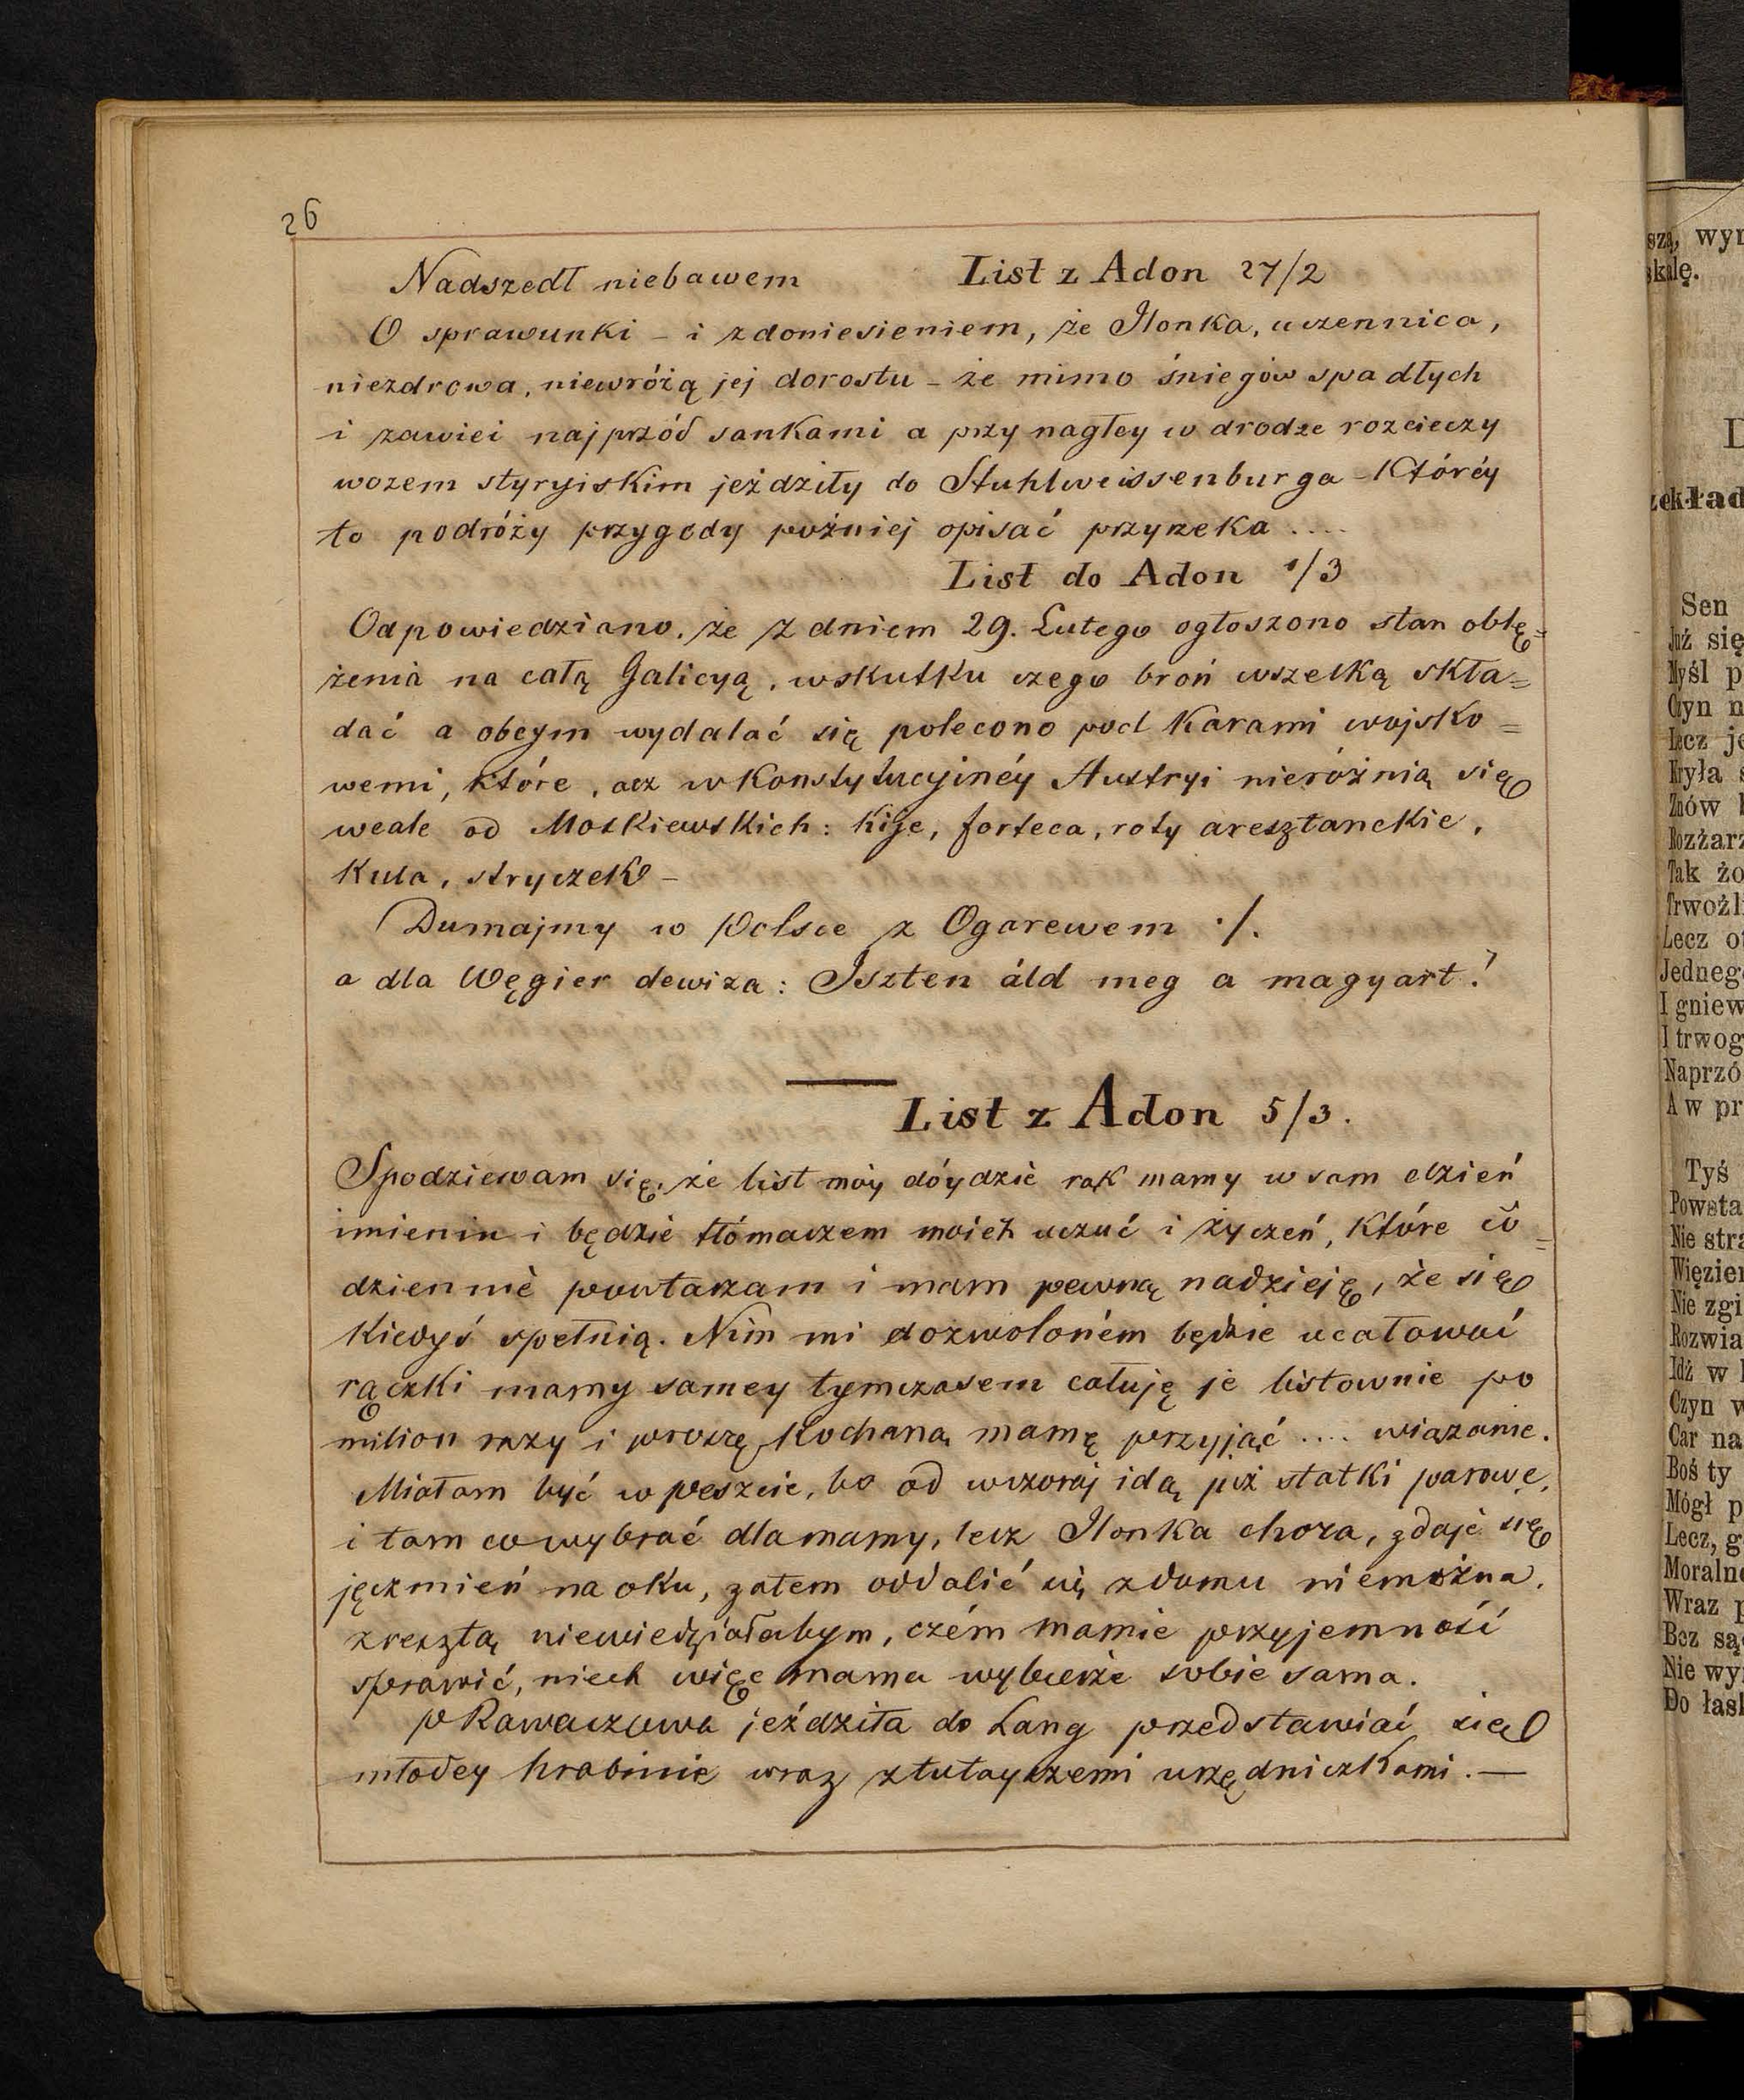 26
Nadszedł niebawem List z Adon 27/2
O sprawunki - i z doniesieniem, że Ilonka, uczennica,
niezdrowa, niewróżą jej dorostu - że mimo śniegów spadłych
i zawiei najprzód sankami a przy nagłey w drodze rozcieczy
wozem styryiskim jeździły do Stuhlweissenburga - Któréy
to podróży przygody poźniej opisać przyrzeka ....
List do Adon 1/3
Odpowiedziano, że z dniem 29. Lutego ogłoszono stan oblę=
żenia na całą Galicyą, wskutku czego broń wszelką skła=
dać a obcym wydalać się polecono pod Karami wojsko=
wemi, które, acz w Konstytucyjnéy Austryi nieróżnią się
wcale od Moskiewskich: kije, forteca, roty aresztanckie,
Kula, stryczek -
Dumajmy w Polsce z Ogarewem ·/.
a dla Węgier dewiza: Iszten áld meg a magyart!
List z Adon 5/3.
Spodziewam się, że list móy dóydzie rąk mamy w sam dzień
imienin i będzie tłómaczem moich uczuć i życzeń, Które co=
dziennie powtarzam i mam pewną nadzieję, że się
Kiedyś spełnią. Nim mi dozwoloném będzie ucałować
rączki mamy samey tymczasem całuję je listownie po
milion razy i proszę Kochaną mamę przyjąć .... wiązanie.
Miałam być w Peszcie, bo od wczoraj idą już statki parowe,
i tam co wybrać dla mamy, lecz Ilonka chora, zdaje się
jęczmień na oku, zatem oddalić się z domu niemożna,
zresztą niewiedziałabym, czém mamie przyjemność
sprawić, niech więc mama wybierze sobie sama.
P Rawaczowa jeździła do Lang przedstawiać się
młodey hrabinie wraz z tutayszemi urzędniczkami. —
szą, wyr
skalę.
D
zekład
Sen
Już się
Myśl p
Czyn n
Lecz je
Była s
Znów
Rozżarz
Tak żo
Trwożli
Lecz ot
Jednego
I gniew
I trwog
Naprzó
A w pr
Tyś
Powsta
Nie stra
Więzien
Nie zgi
Rozwia
Idź w
Czyn w
Car na
Boś ty
Mógł p
Lecz, g
Moralne
Wraz p
Bez są
Nie wy
Do łask